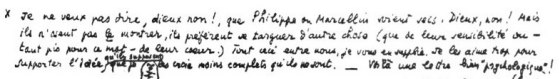 * Je ne veux pas dire, dieux non!, que Philippe ou Marcellin soient secs. Dieux, non! Mais
ils n'osent pas le montrer, ils préfèrent se targuer d'autre chose (que de leur sensibilité ou -
tant pis pour ce mot - de leur cœur.) Tout ceci entre nous, je vous en supplie. Je les aime trop pour
supporter l'idée que je les crois moins complets qu'ils ne sont. — Voilà une lettre bien "psychologique"!